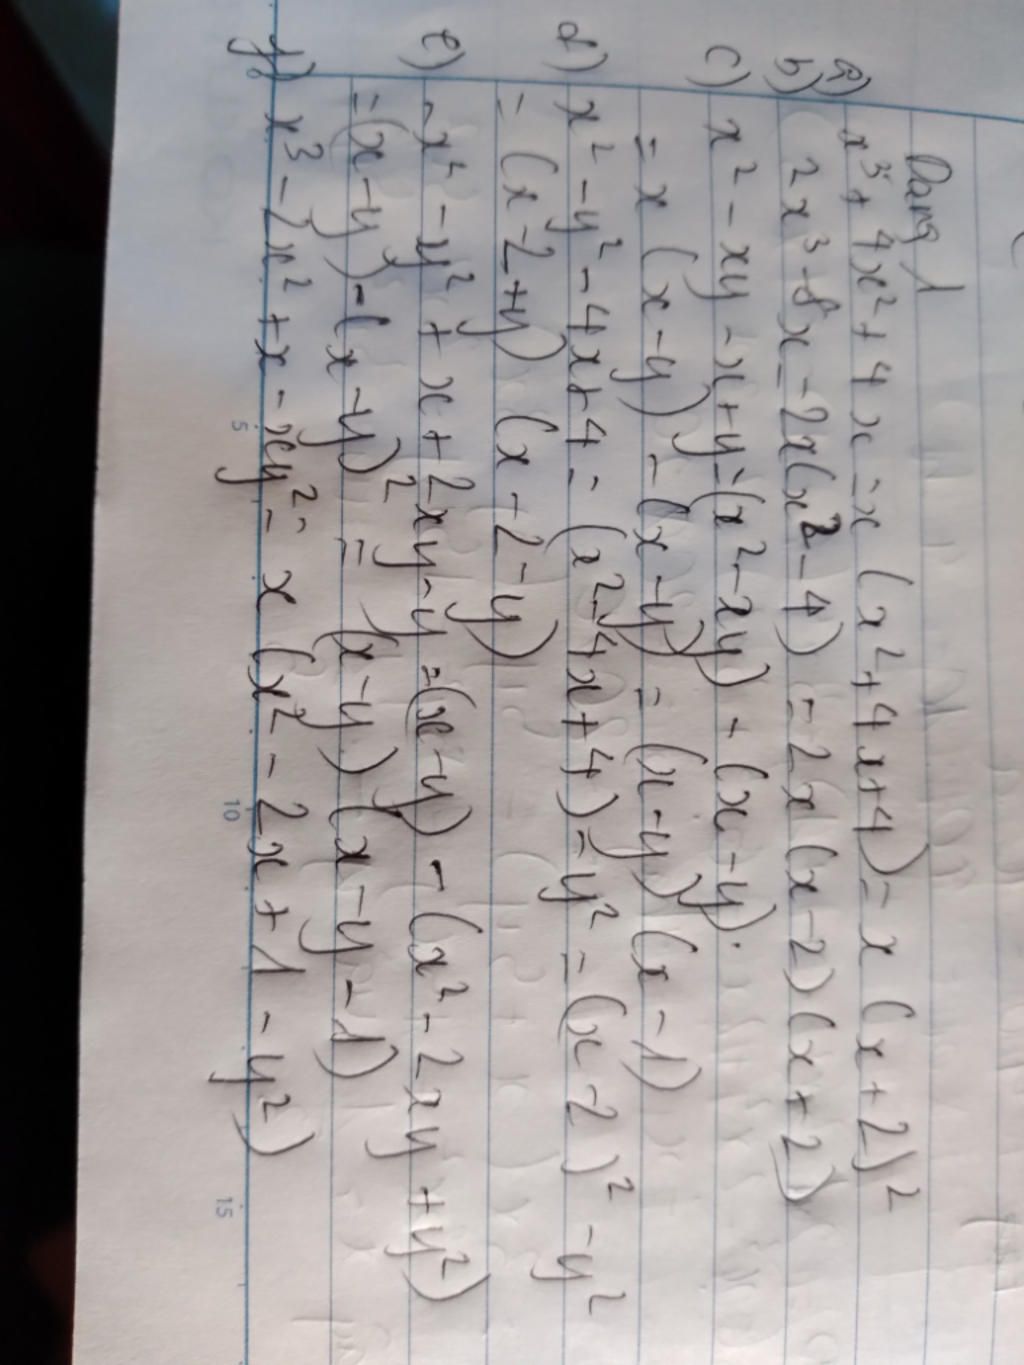 Dạng 1
a) x³ + 4x² + 4x = x (x² + 4x + 4) = x (x + 2)²
b) 2x³ - 8x = 2x(x² - 4) = 2x (x - 2) (x + 2)
c) x² - xy - x + y = (x² - xy) - (x - y).
= x (x - y) - (x - y) = (x - y) (x - 1)
d) x² - y² - 4x + 4 = (x² - 4x + 4) - y² = (x - 2)² - y²
= (x - 2 + y) (x - 2 - y)
e) - x² - y² + x + 2xy - y = (x - y) - (x² - 2xy + y²)
= (x - y) - (x - y)² = (x - y) (x - y - 1)
f) x³ - 2x² + x - xy² = x (x² - 2x + 1 - y²)
5
10
15